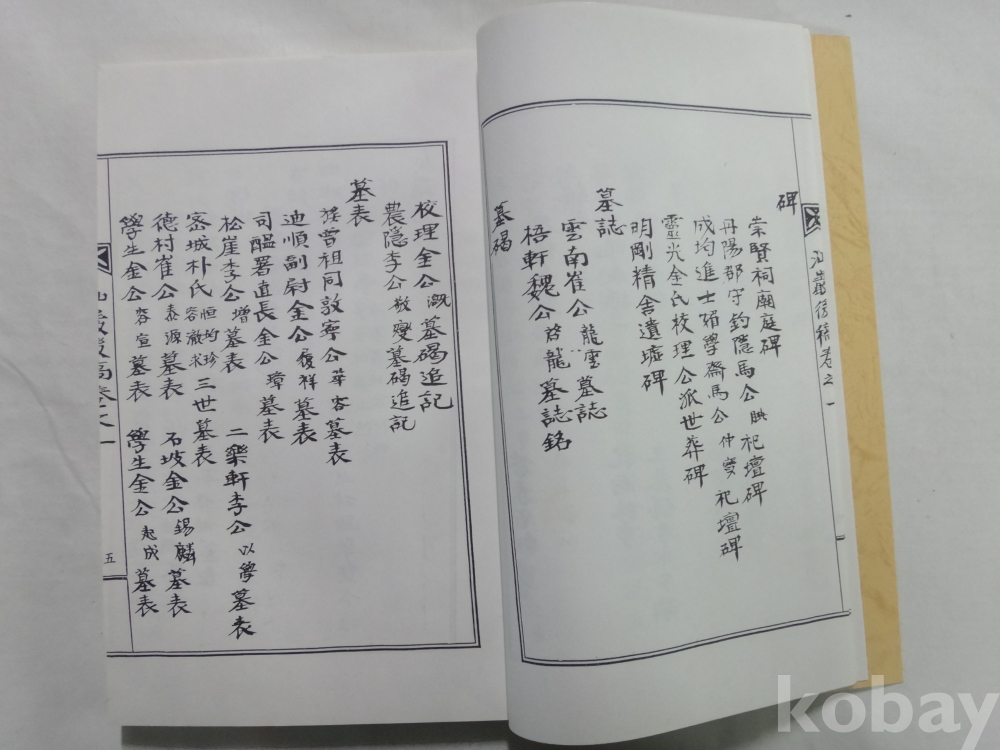 碑
崇賢祠廟庭碑
丹陽郡守釣隱馬公 祀壇碑
成均進士 學齋馬公仲變祀壇碑
靈光金氏校理公派世葬碑
明剛精舍遺墟碑
墓誌
雲南崔公龍雲墓誌
梧軒魏公啓龍墓誌銘
墓碣
校理金公 墓碣追記
農隱李公敬燮墓碣追記
墓表
族曾祖同敦寧公華容墓表
迪順副尉金公復祥墓表
司醞署直長金公璋墓表
松崖李公增墓表 二樂軒李公以學墓表
密城朴氏恒均珍容徹求三世墓表
德村崔公泰源墓表 石坡金公錫麟墓表
學生金公容宣墓表 學生金公起成墓表
五
kobay